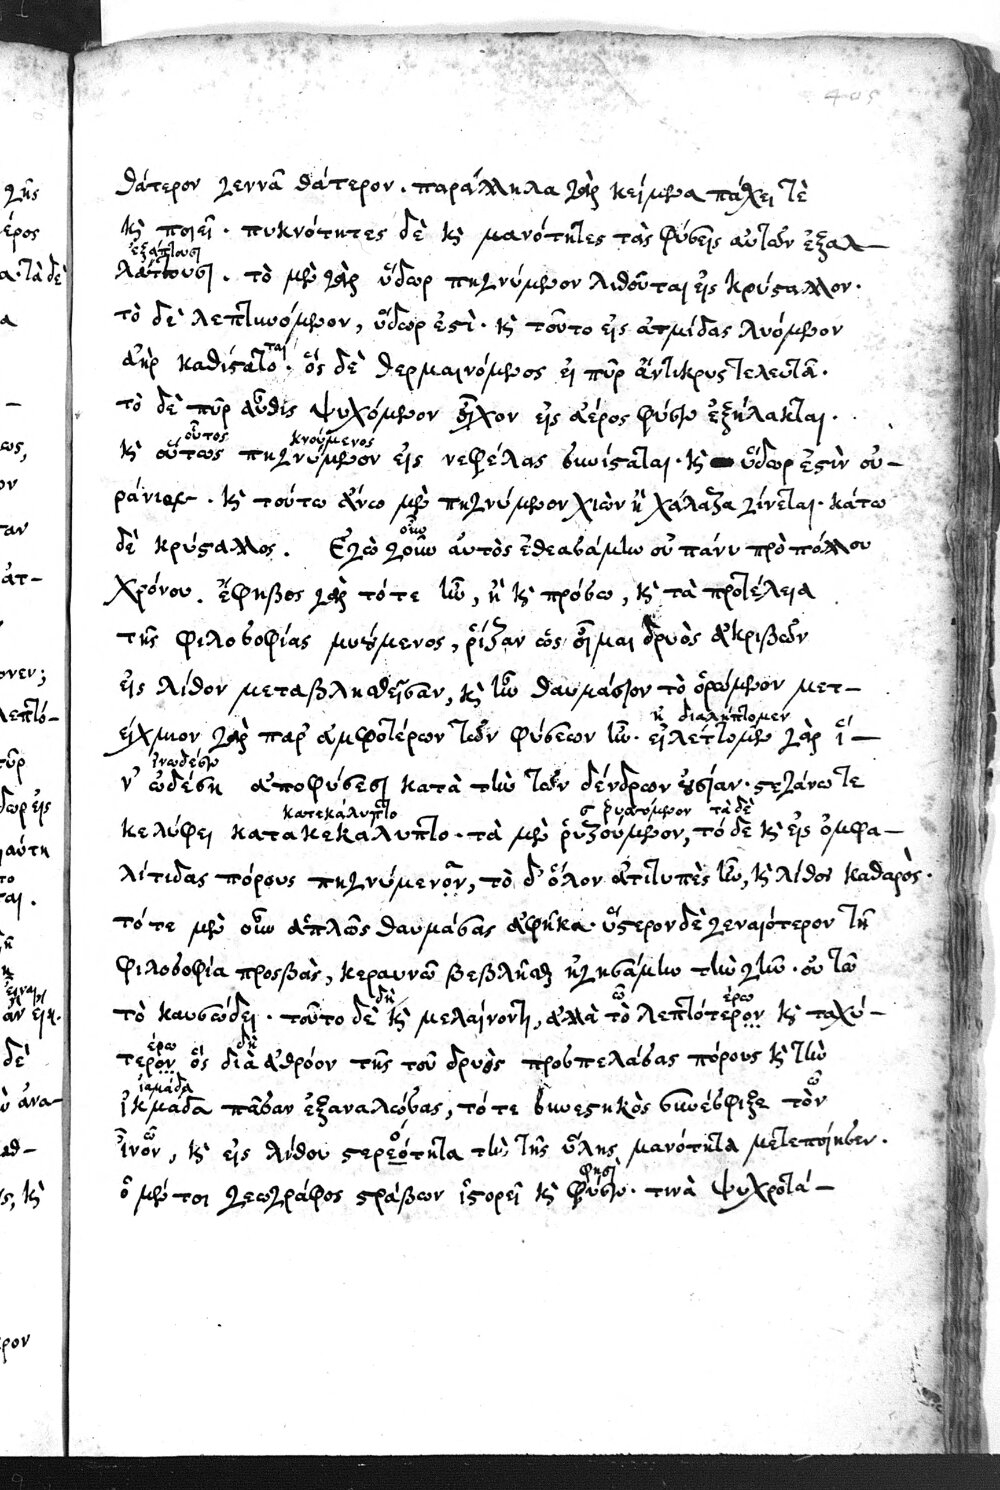 405
θάτερον γεννᾶ θάτερον. παράλληλα γὰρ κείμενα πάσχει τὲ
καὶ ποιεῖ. πυκνότητες δὲ καὶ μανότητες τὰς φύσεις αὐτῶν ἐξαλ-
ἐξάπτουσι
λάττουσι. τὸ μὲν γὰρ ὕδωρ πηγνύμενον λιθοῦται εἰς κρύσταλλον.
τὸ δὲ λεπτυνόμενον, ὕδωρ ἐστὶ. καὶ τοῦτο εἰς ἀτμίδας λυόμενον
ται
ἀὴρ καθίστατο. ὅς δὲ θερμαινόμενος εἰ πῦρ ἄντικρυς τελευτᾶ.
τὸ δὲ πῦρ αὖθις ψυχόμενον εἰς ἀέρος φύσιν ἐξήλακται.
οὗτος κνούμενος
καὶ οὕτως πηγνύμενον εἰς νεφέλας συνίσταται. καὶ ὕδωρ ἐστὶν οὐ-
ράνιον. καὶ τούτω ἄνω μὲν πηγνύμενον χιὼν ἢ χάλαζα γίνεται. κάτω
οὖν
δὲ κρύσταλλος. Ἐγὼ γοῦν αὐτὸς ἐθεασάμην οὐ πάνυ πρὸ πόλλου
χρόνου. ἔφηβος γὰρ τότε ἦν, ἢ καὶ πρόσω, καὶ τὰ προτέλεια
τῆς φιλοσοφίας μυούμενος, ῥίζαν ὡς οἶμαι δρυὸς ἀκριβῶν
εἰς λίθον μεταβληθεῖσαν, καὶ ἦν θαυμάσιον τὸ ὁρώμενον μετ-
ἢ διαλήπτομεν
είχμιον γὰρ παρ' ἀμφοτέρων τῶν φύσεων ἦν. εἰλέττομεν γὰρ ἵ-
ἰνωδέσιν
ν' ὠδέση ἀποφύσεσι κατὰ τὴν τῶν δένδρων οὐσίαν. στεγάνω τε
κατεκάλυπτο ῥυατόμενον τὰ δὲ
κελύφει κατακεκάλυπτο. τὰ μὲν ῥυζούμενον, τό δὲ καὶ εἰς ὀμφα-
λίτιδας πόρους πηγνύμενον, τὸ δ' ὅλον ἀτιτυπὲς ἦν, καὶ λίθος καθαρὸς.
τότε μὲν οὖν ἁπλῶς θαυμάσας ἀφῆκα. ὕστερον δὲ γεναιότερον τῇ
φιλοσοφία προσβὰς, κεραυνῶ βεβλῆσθαι ἡγησάμην τὴν γῆν. οὐ τῶ
δὴ ῶ έρω
τὸ καυσώδει. τοῦτο δὲ καὶ μελαίνοντι, ἀλλὰ τὸ λεπτότερον καὶ ταχύ-
έρω δὴ
τερον ὅς διὰ ἀθρόον τῆς τοῦ δρυὸς προσπελάσας πόρους καὶ τὴν
ἰαμάδα
ἰκμάδα πᾶσαν ἐξαναλώσας, τότε συνεστηκὸς συνέσφιξε τὸν
ἶνον, καὶ εἰς λίθου στερεότητα τὴν τῆς ὕλης μανότητα μετεποίησεν.
φησὶ
ὁ μέν τοι γεωγράφος στράβων ἱστορεῖ καὶ φύσιν. τινὰ ψυχροτά-